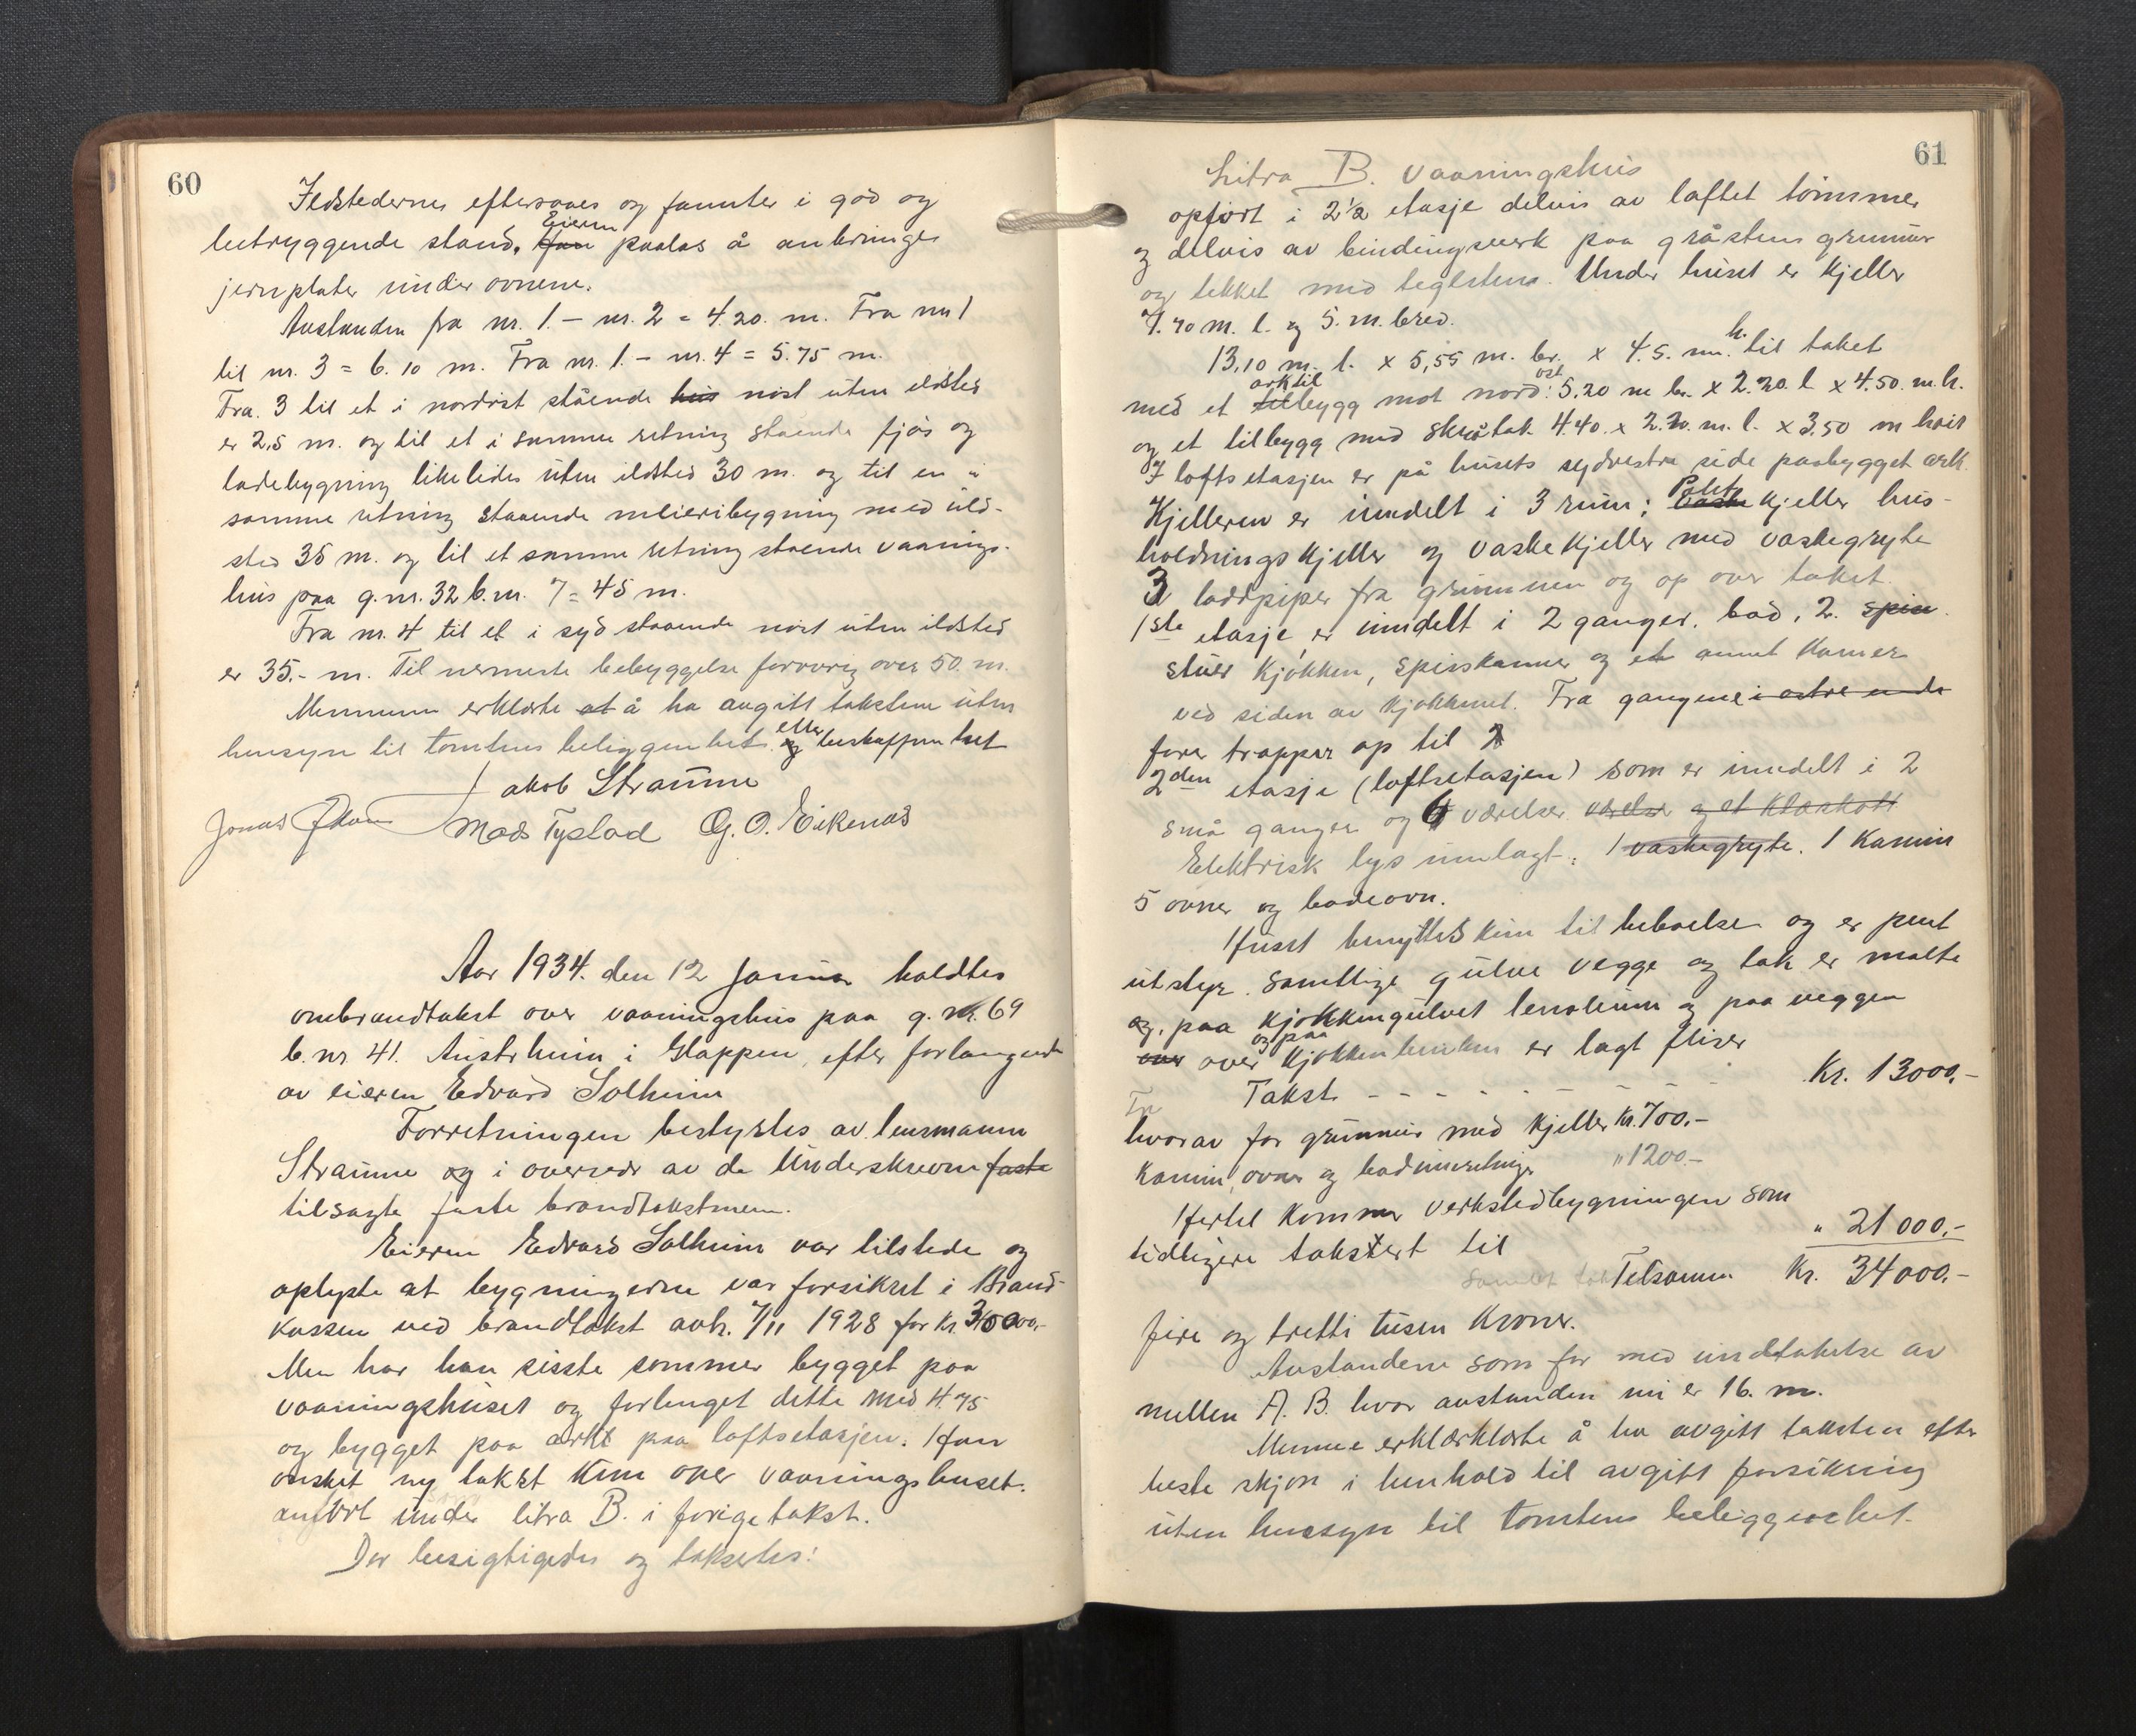 60
Ildstedernes eftersaaes og funnter i god og
betryggende stand. Han Eieren paalas å anbringe
jernplater under ovnene.
Avstanden fra nr. 1. - nr. 2 = 4.20. m. Fra nr 1
til nr. 3 = 6.10 m. Fra nr. 1. - nr. 4 = 5.75 m.
Fra. 3 til et i nordvist stående hus nøst uten ildsted
er 2,5 m. og til et i samme retning stående fjøs og
ladebygning likeledes uten ildsted 30 m. og til en i
samme retning staaende meieribygning med ild-
sted 35 m. og til et samme retning stående vaanings-
hus paa g.nr. 32 b.nr. 7 = 45 m.
Fra nr. 4 til et i syd staaende nøst uten ildsted
er 35.- m. Til nermeste bebyggelse forøvrig over 50. m.
Mennene erklærte at å ha avgitt taksten uten
hensyn til tomtens beliggenhet og eller beskaffenhet
Jakob Straume
Jonas Mads Tystad G. O. Eikenæs
Aar 1934. den 12 Januar holdtes
ombrandtakst over vaaningshus paa g. nr. 69
b. nr 41. Austrheim i Gloppen, efter forlangende
av eieren Edvard Solheim
Forretningen bestyrtes av lensmann
Straume og i overvær av de Underskrevne faste
tilsagte faste brandtakstmenn.
Eieren Edvard Solheim var tilstede og
oplyste at bygningerne var forsikret i Brand-
kassen ved brandtakst avh. 7/11 1928 for kr. 31000,-
Men har han sisste sommer bygget paa
vaaningshuset og forlenget dette med 4.75
og bygget paa arkt paa loftsetasjen. Han
ønsket ny takst kun over vaaningshuset.
anført under litra B. i forige takst.
Der besigtigedes og takseredes:
61
Litra B. Vaaningshus
opført i 2½ etasje delvis av laftet tømmer
og delvis av bindingsverk paa gråstens grunnur
og tekket med teglsten. Under huset er kjeller
7.70 m. l. og 5. m. bred.
13,10 m. l. x 5,55 m. br. x 4.5. m. h. til taket
med et til ark til bygg mot nord øst: 5.20 m br. x 2.20. l x 4.50. m. h.
og et tilbygg med skråtak 4.40. x 2.20. m. l. x 3.50 m høit
I loftsetasjen er på husets sydvestre side paabygget ark.
Kjelleren er inndelt i 3 rum: Vaske Potet kjeller hus-
holdningskjeller og vaskekjeller med vaskegryte
3 loddpiper fra grunnen og op over taket.
1ste etasje er inndelt i 2 ganger. bad, 2. spise
stuer kjøkken, spiskammer og et annet kamer
ved siden av kjøkkenet. Fra gangene i østre ende
fører trapper op til 2
2den etasje (loftsetasjen) som er inndelt i 2
små ganger og 6 værelser værelser og et kloskott
Elektrisk lys innlagt: 1 vaskegryte. 1 kamin
5 ovner og badeovn.
Huset benyttes kun til beboelse og er pent
utstyr. Samtlige gulve vegge og tak er malte
og, paa kjøkkengulvet lenoleum og paa veggen
over over og paa kjøkkenbenken er lagt fliser
Takst - - - - - - - - Kr. 13000,-
hvorav for grunnur med kjeller kr. 700.-
kamin, ovner og badinnretninger " 1200.-
Hertil kommer verkstedbygningen som
tidligere taksert til " 21000,-
Tilsamen Kr. 34000,-
fire og tretti tusen kroner.
Avstandene som før med undtakelse av
mellem A. B. hvor avstanden nu er 16. m.
Mennene erklærklærte å ha avgitt taksten efter
beste skjøn i henhold til avgitt forsikring
uten hensyn til tomtens beliggenhet.